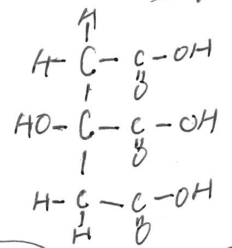 H
H-C-C-OH
O
HO-C-C-OH
O
H-C-C-OH
H O